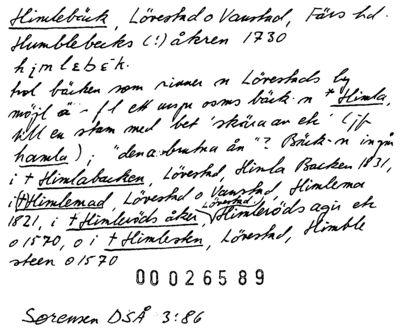 Himlebäck, Lövestad o Vanstad, Färs hd.
Humblebecks (!) åkren 1730
hįmlɛbɛk.
trol bäcken som rinner n Lövestads by
möjl ä - fl ett urspr osms bäck n *Himla,
till en stam med bet 'skära av etc' (jfr
hamla); "den avbrutna ån"? Bäck-n ingår
i †Himlabacken, Lövestad, Himla Backen 1831,
i †Himlemad, Lövestad o Vanstad, Himlema
1821, i †Himleröds åker, Lövestad, Himleröds agir etc
o 1570, o i †Himlesten, Lövestad, Himble
steen o 1570
00026589
Sørensen DSÅ 3:86